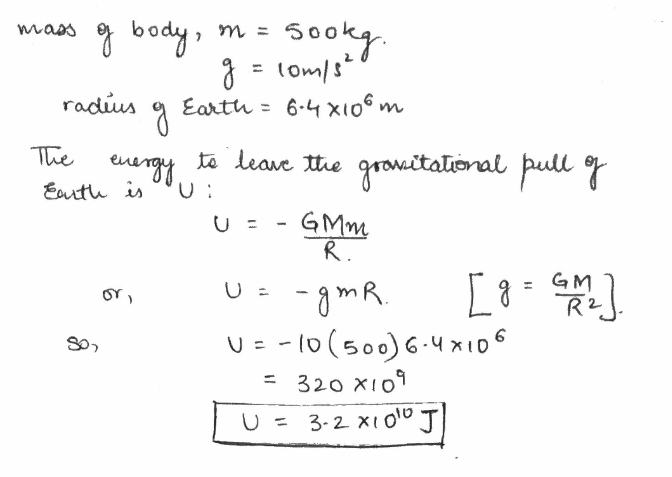 mass of body, m = 500kg.
g = 10m/s²
radius of Earth = 6.4 x10⁶ m
The energy to leave the gravitational pull of
Earth is U :
U = - GMm/R.
or, U = -gmR. [g = GM/R²].
so, U = -10(500)6.4x10⁶
= 320 x10⁹
U = 3.2 x10¹⁰ J